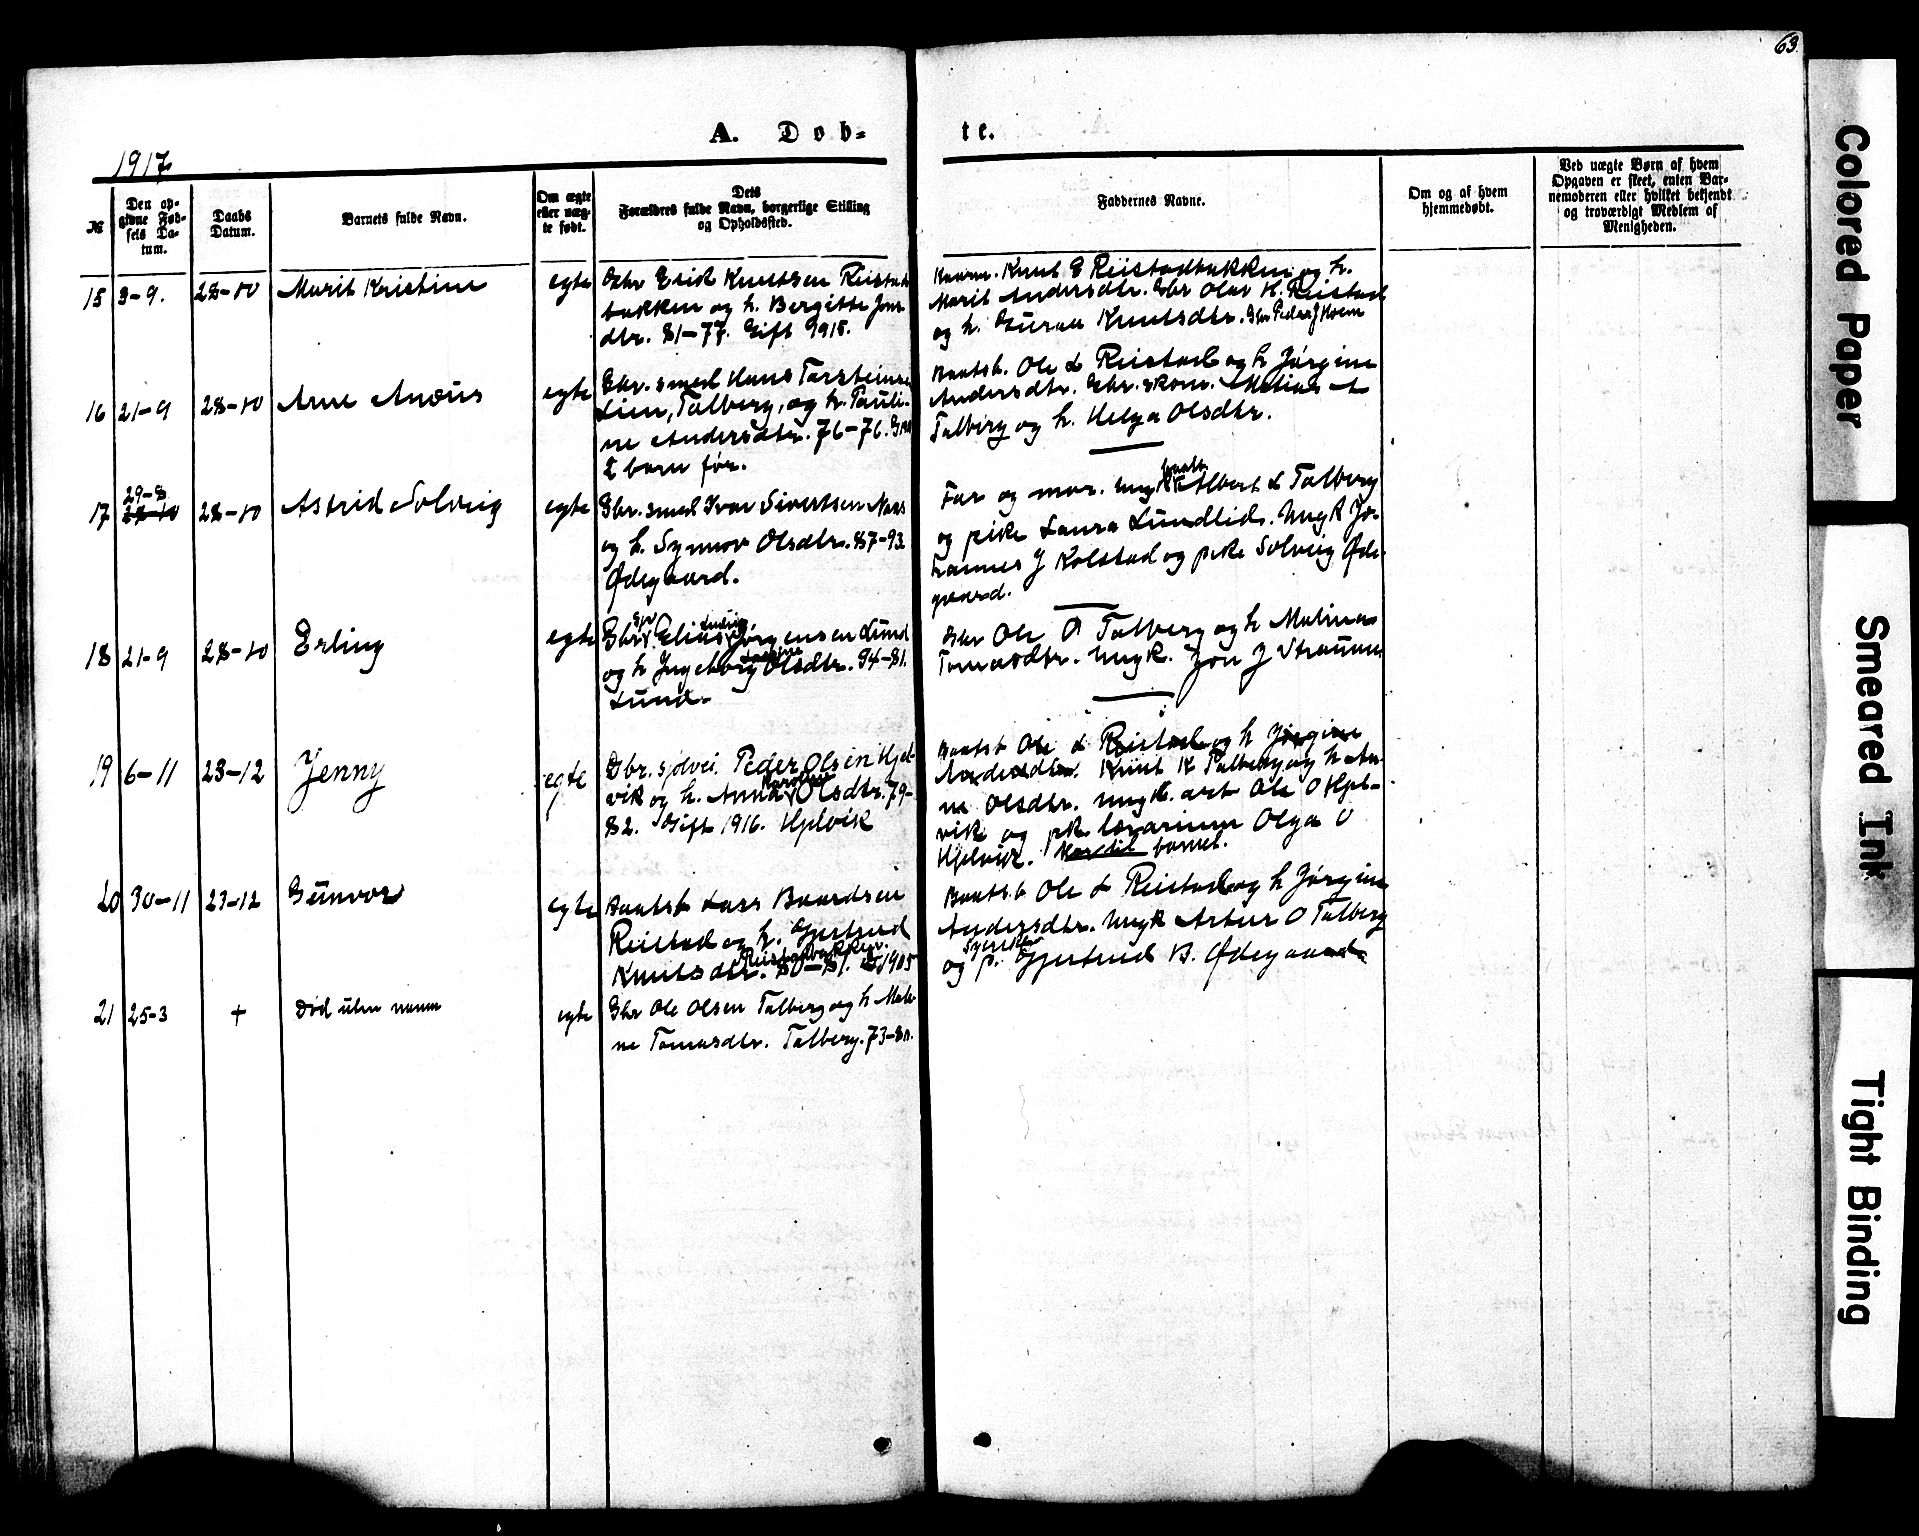 63.
A. Døb-
te.
1917
№
Den op-
givne Fød-
sels Da-
tum.
Daabs
Datum.
Barnets fulde Navn.
Om ægte
eller uæg-
te født.
Dets
Forældres fulde Navn, borgerlige Stilling
og Opholdssted.
Faddernes Navne.
Om og af hvem
hjemmedøbt.
Ved uægte Børn af hvem
Opgaven er skeet, enten Bar-
nemoderen eller hvilket bekjendt
og troværdigt Medlem af
Menigheden.
15 3-9. 28-10 Marit Kristine egte Gbr Erik Knutsen Reistad
bakken og h. Bergitte Jons
dtr. 81-77. Gift 1915.
Knut E Reistadbakken og h.
Marit Andersdtr. Gbr Olav K. Reistad
og h. Guroa Knutsdtr. Gbr Peder J Hoem
16 21-9 28-10 Arne Andris egte Gbr. smed Hans Torsteinsen
Lien, Talberg, og h. Pauli-
ne Andersdtr. 76-76.
2 barn før.
Baatsb. Ole L Reistad og h Jørgine
Andersdtr. Gbr. skom. Matias A
Talberg og h. Helga Olsdtr.
17 29-8 28-10 28-10 Astrid Solveig egte Gbr. smed Ivar Sivertsen Naas
og h. Synnøv Olsdtr. 87-93.
Ødegaard.
Far og mor. Ungk baatb. Albert L Talberg
og pike Laura Lundlid. Ungk Jo-
hannes J Kolstad og pike Solveig Øde-
gaard.
18 21-9 28-10 Erling egte Gbr. Elias Ludvig Jørgensen Lund
og h Ingeborg Olsdtr. 94-81.
Lund.
Gbr Ole O Talberg og h Malina
Tomasdtr. Ungk. Jon J Straumen
19 6-11 23-12 Jenny egte Gbr. sjølvei. Peder Olsen Hjel-
vik og h. Anna Karoline Olsdtr. 79-
82. Gift 1916. Hjelvik
Baatsb Ole L Reistad og h Jørgine
Andersdtr. Knut K Talberg og h An-
ne Olsdtr. Ungk. art Ole O Hjel-
vik og pk lærarinne Olga O
Hjelvik. Mor til barnet.
20 30-11 23-12 Gunvor egte Baatsb Lars Baardsen
Reistad og h. Gjertrud
Knutsdtr. Reistadbakken. 80-81. 1905
Baatsb Ole L Reistad og h Jørgine
Andersdtr. Ungk Artur O Talberg
og p. Gjertrud B. Ødegaard
21 25-3 + Død uten namn egte Gbr Ole Olsen Talberg og h Male-
ne Tomasdtr. Talberg. 73-80.
Colored Paper
Smeared Ink
Tight Binding